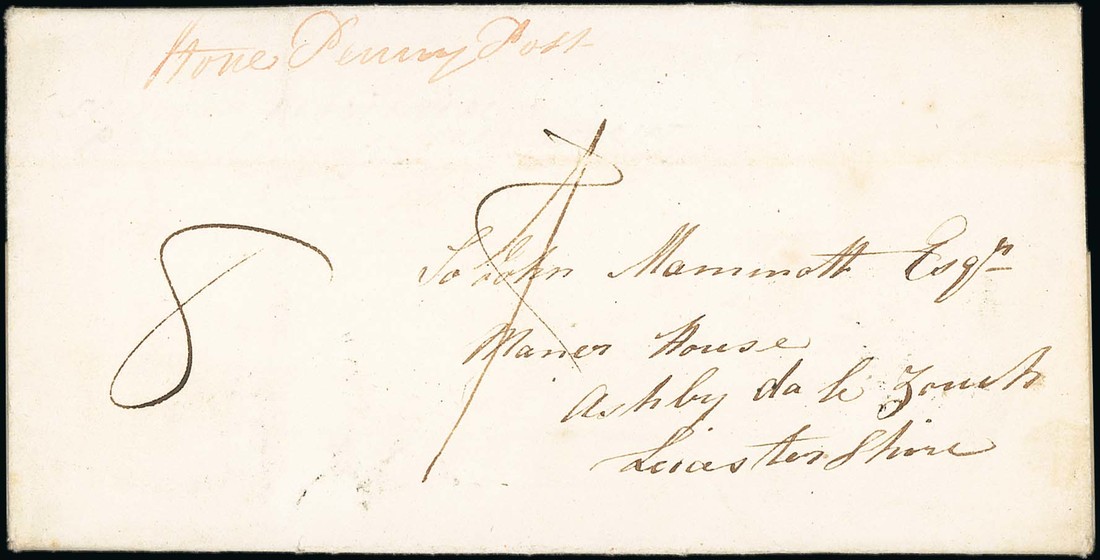 Hove Penny Post
8
To John Mammott Esqr
Maner House
Ashby da le Zouch
Leicastershire